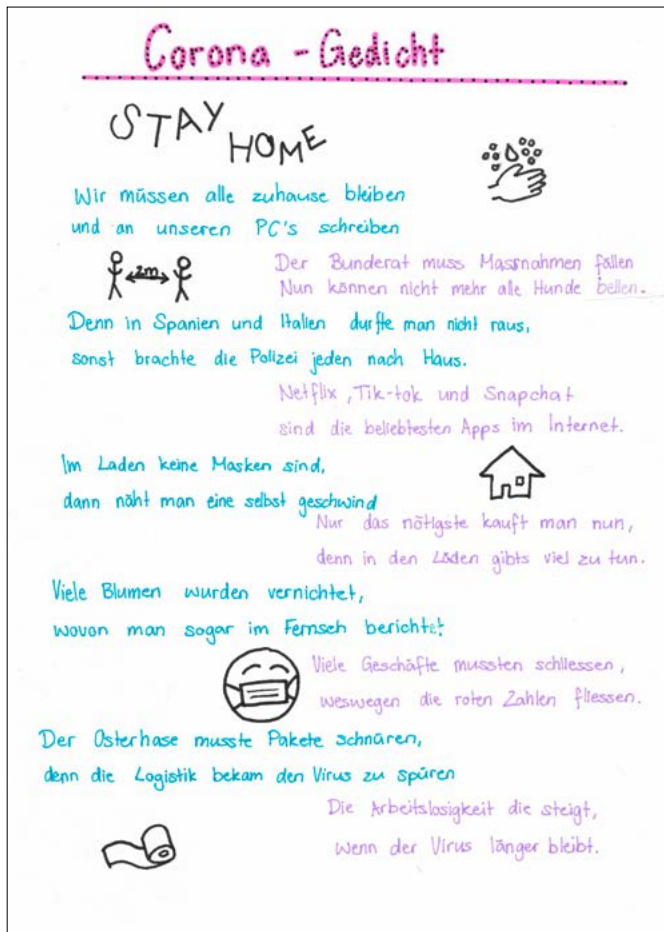 Corona - Gedicht
STAY HOME
Wir müssen alle zuhause bleiben
und an unseren PC's schreiben
2m
Der Bunderat muss Massnahmen fällen
Nun können nicht mehr alle Hunde bellen.
Denn in Spanien und Italien durfte man nicht raus,
sonst brachte die Polizei jeden nach Haus.
Netflix, Tik-tok und Snapchat
sind die beliebtesten Apps im Internet.
Im Laden keine Masken sind,
dann näht man eine selbst geschwind
Nur das nötigste kauft man nun,
denn in den Läden gibts viel zu tun.
Viele Blumen wurden vernichtet,
wovon man sogar im Fernseh berichtet
Viele Geschäfte mussten schliessen,
weswegen die roten Zahlen fliessen.
Der Osterhase musste Pakete schnüren,
denn die Logistik bekam den Virus zu spüren
Die Arbeitslosigkeit die steigt,
wenn der Virus länger bleibt.